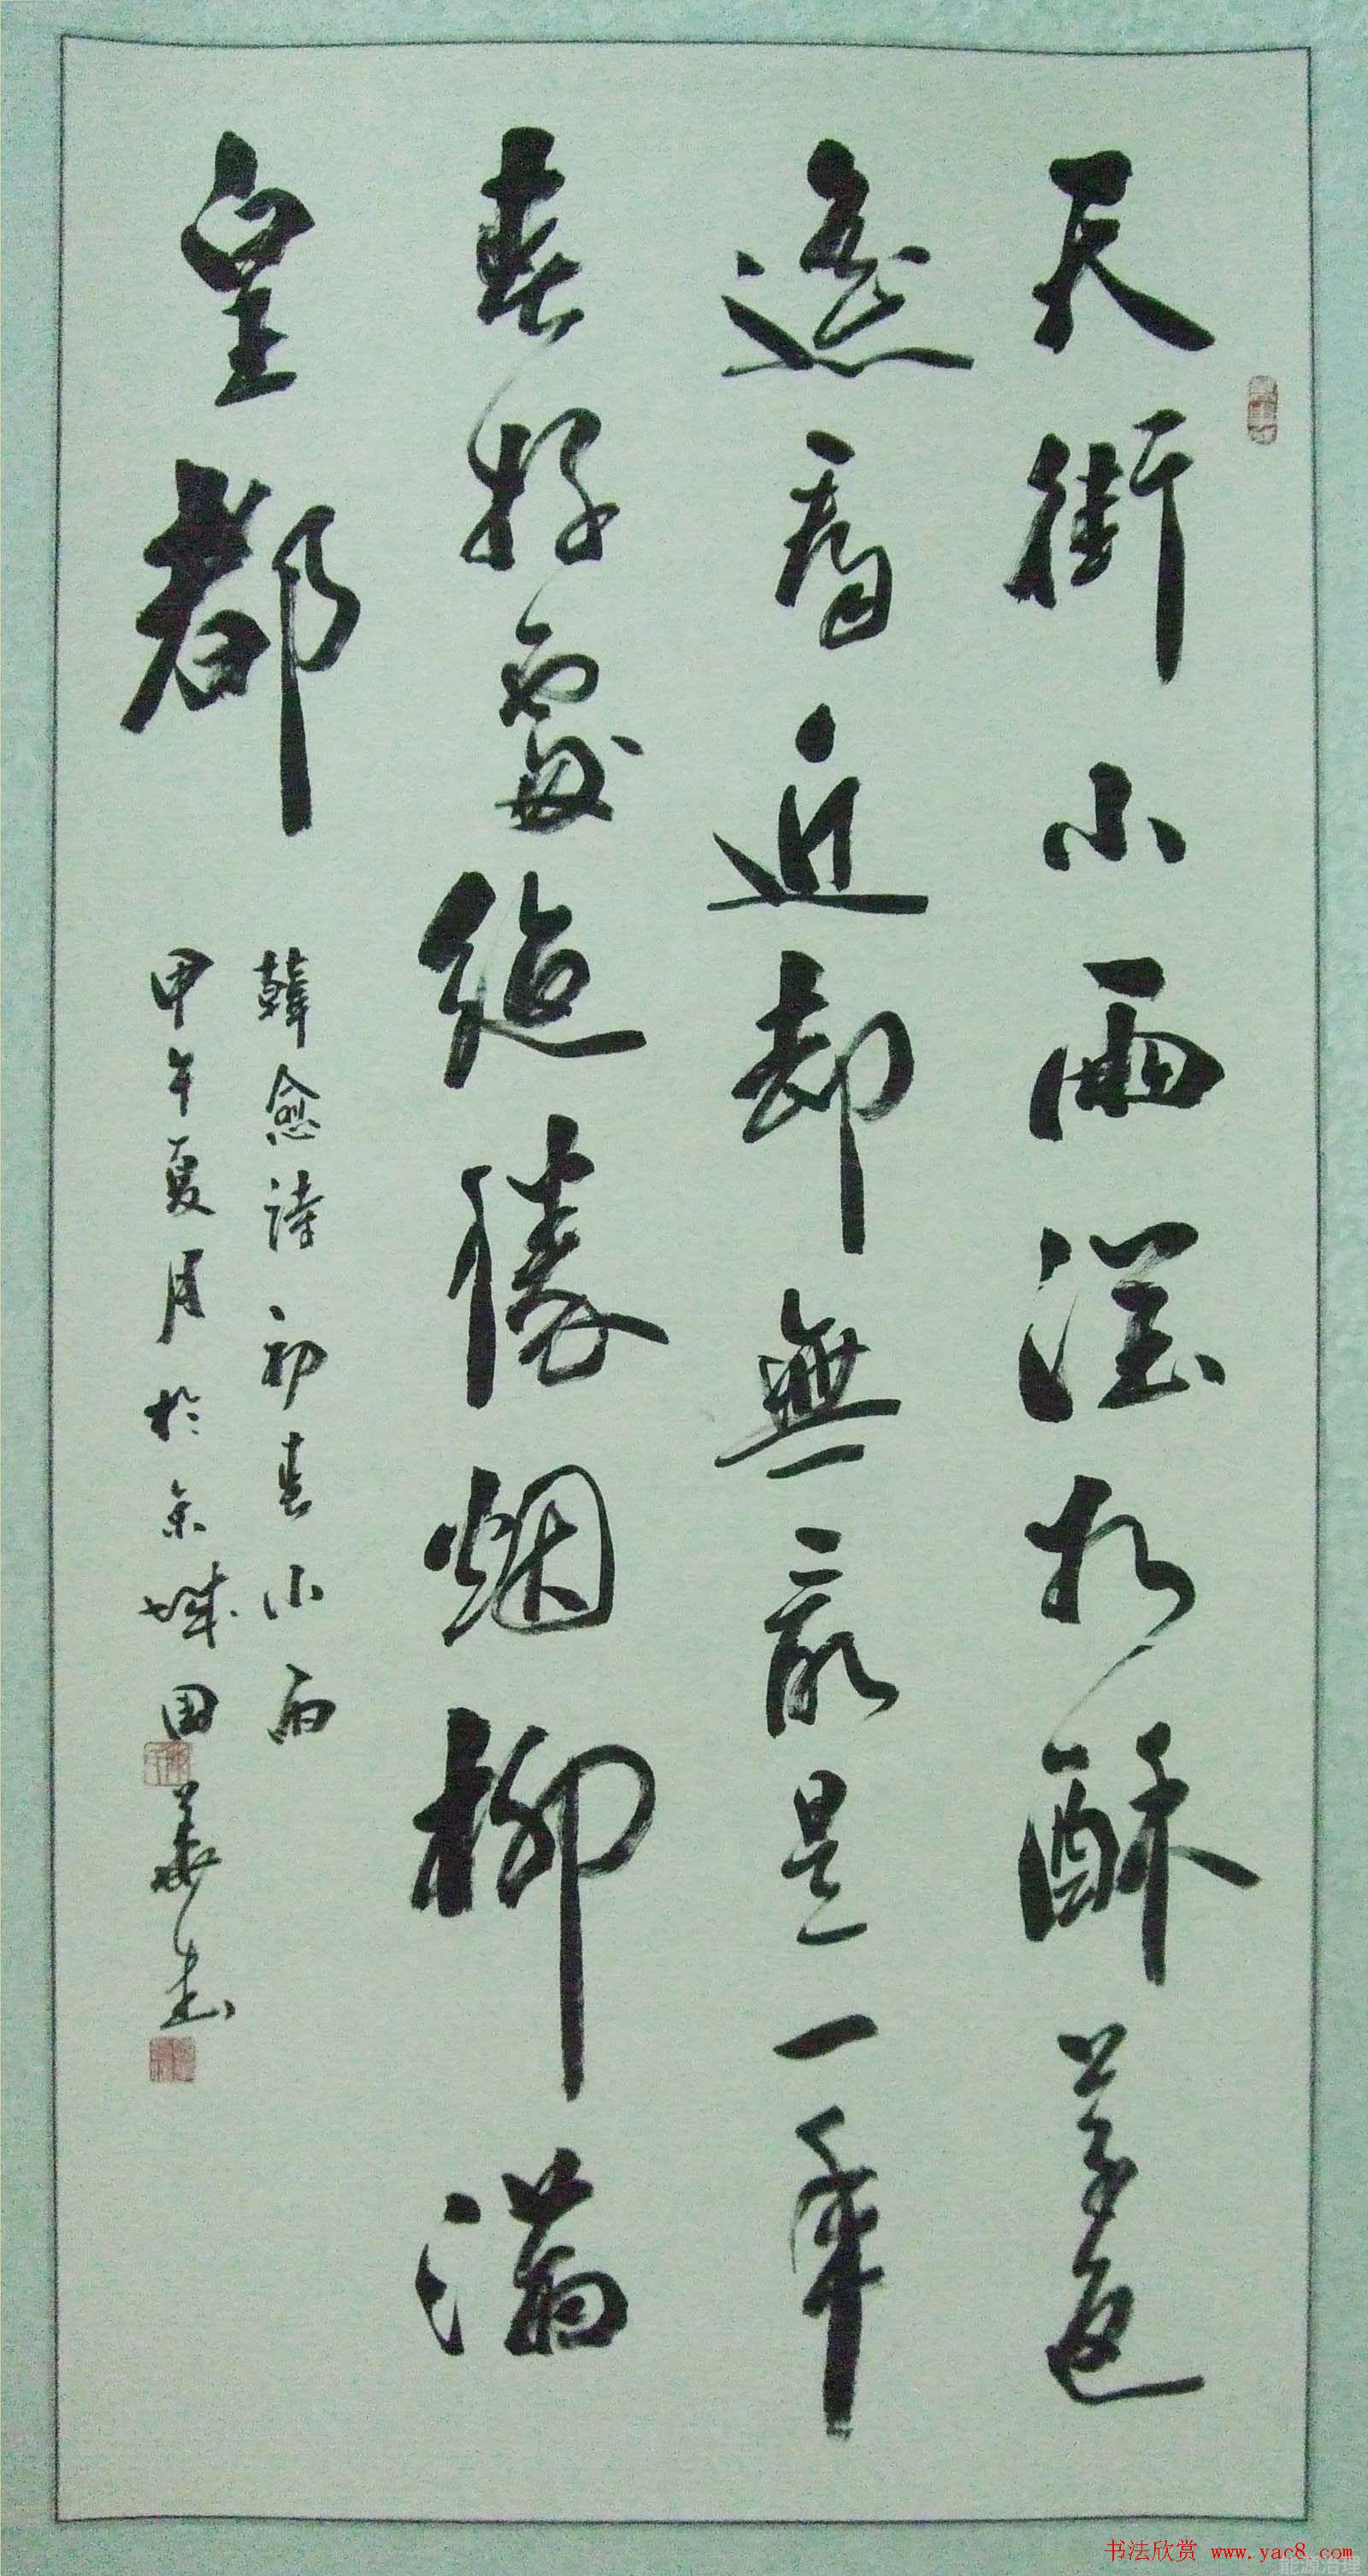 天街小雨潤如酥草色
遥看近却無最是一年
春好處絶勝烟柳滿
皇都
韓愈詩初春小雨
甲午夏月於京城国華书
书法欣赏 www.yac8.com